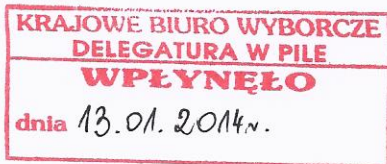 KRAJOWE BIURO WYBORCZE
DELEGATURA W PILE
WPŁYNĘŁO
dnia 13.01.2014r.